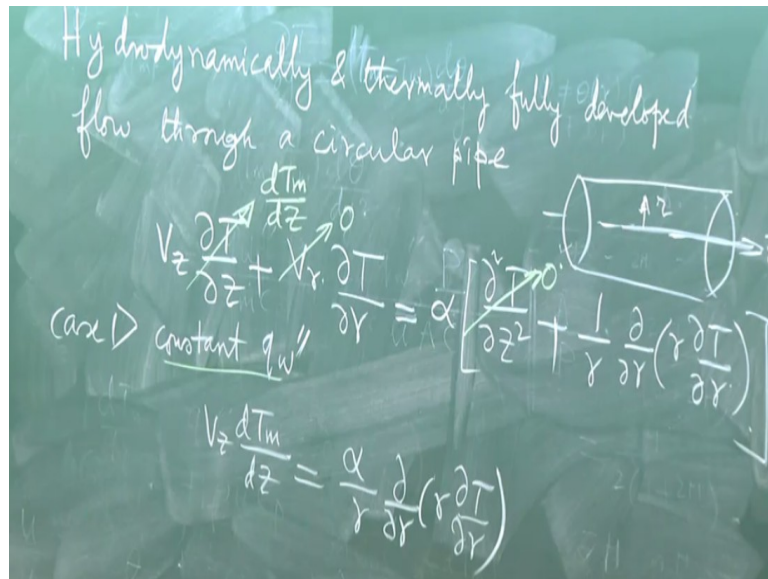 Hydrodynamically & thermally fully developed
flow through a circular pipe
dTm/dz
0
Vz ∂T/∂z + Vr ∂T/∂r = α [ ∂²T/∂z² + 1/r ∂/∂r (r ∂T/∂r) ]
0
r
z
Case 1> constant qw″
Vz dTm/dz = α/r ∂/∂r (r ∂T/∂r)